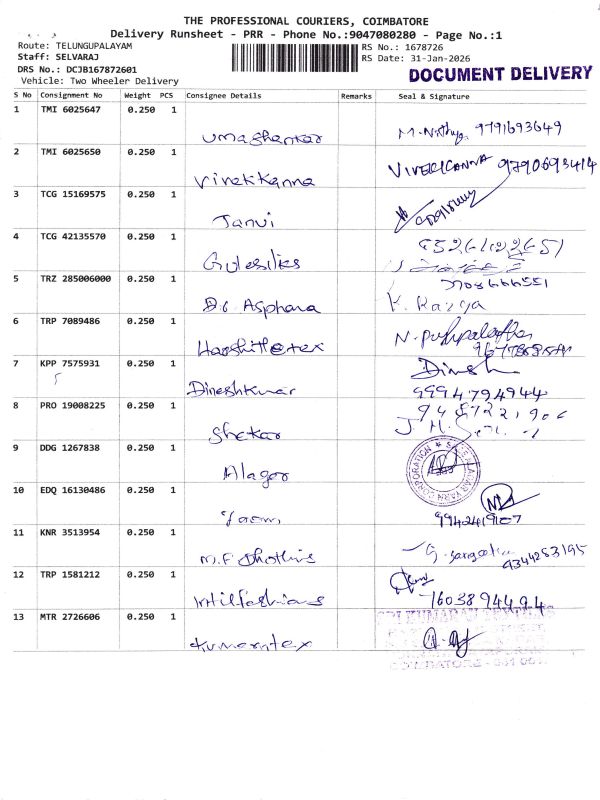 THE PROFESSIONAL COURIERS, COIMBATORE
Delivery Runsheet - PRR - Phone No.:9047080280 - Page No.:1
Route: TELUNGUPALAYAM
RS No.: 1678726
Staff: SELVARAJ
RS Date: 31-Jan-2026
DRS No.: DCJB167872601
DOCUMENT DELIVERY
Vehicle: Two Wheeler Delivery
S No Consignment No Weight PCS Consignee Details Remarks Seal & Signature
1 TMI 6025647 0.250 1
Umashankar M. Nithya 9791693649
2 TMI 6025650 0.250 1
Vivekkanna VIVEKKANNA 9790693414
3 TCG 15169575 0.250 1
Janvi
4 TCG 42135570 0.250 1
5 TRZ 285006000 0.250 1
D.C Asphana K. Ramya
6 TRP 7089486 0.250 1
N. Pushpalatha
7 KPP 7575931 0.250 1
Dinesh
Dineshkumar 9994794944
8 PRO 19008225 0.250 1
Shekar
9 DDG 1267838 0.250 1
YARN CORPORATION
Alagar
10 EDQ 16130486 0.250 1
9942419107
11 KNR 3513954 0.250 1
M.F Dhothis 9344283195
12 TRP 1581212 0.250 1
13 MTR 2726606 0.250 1
SRI KUMARAN
Kumarantex
COIMBATORE